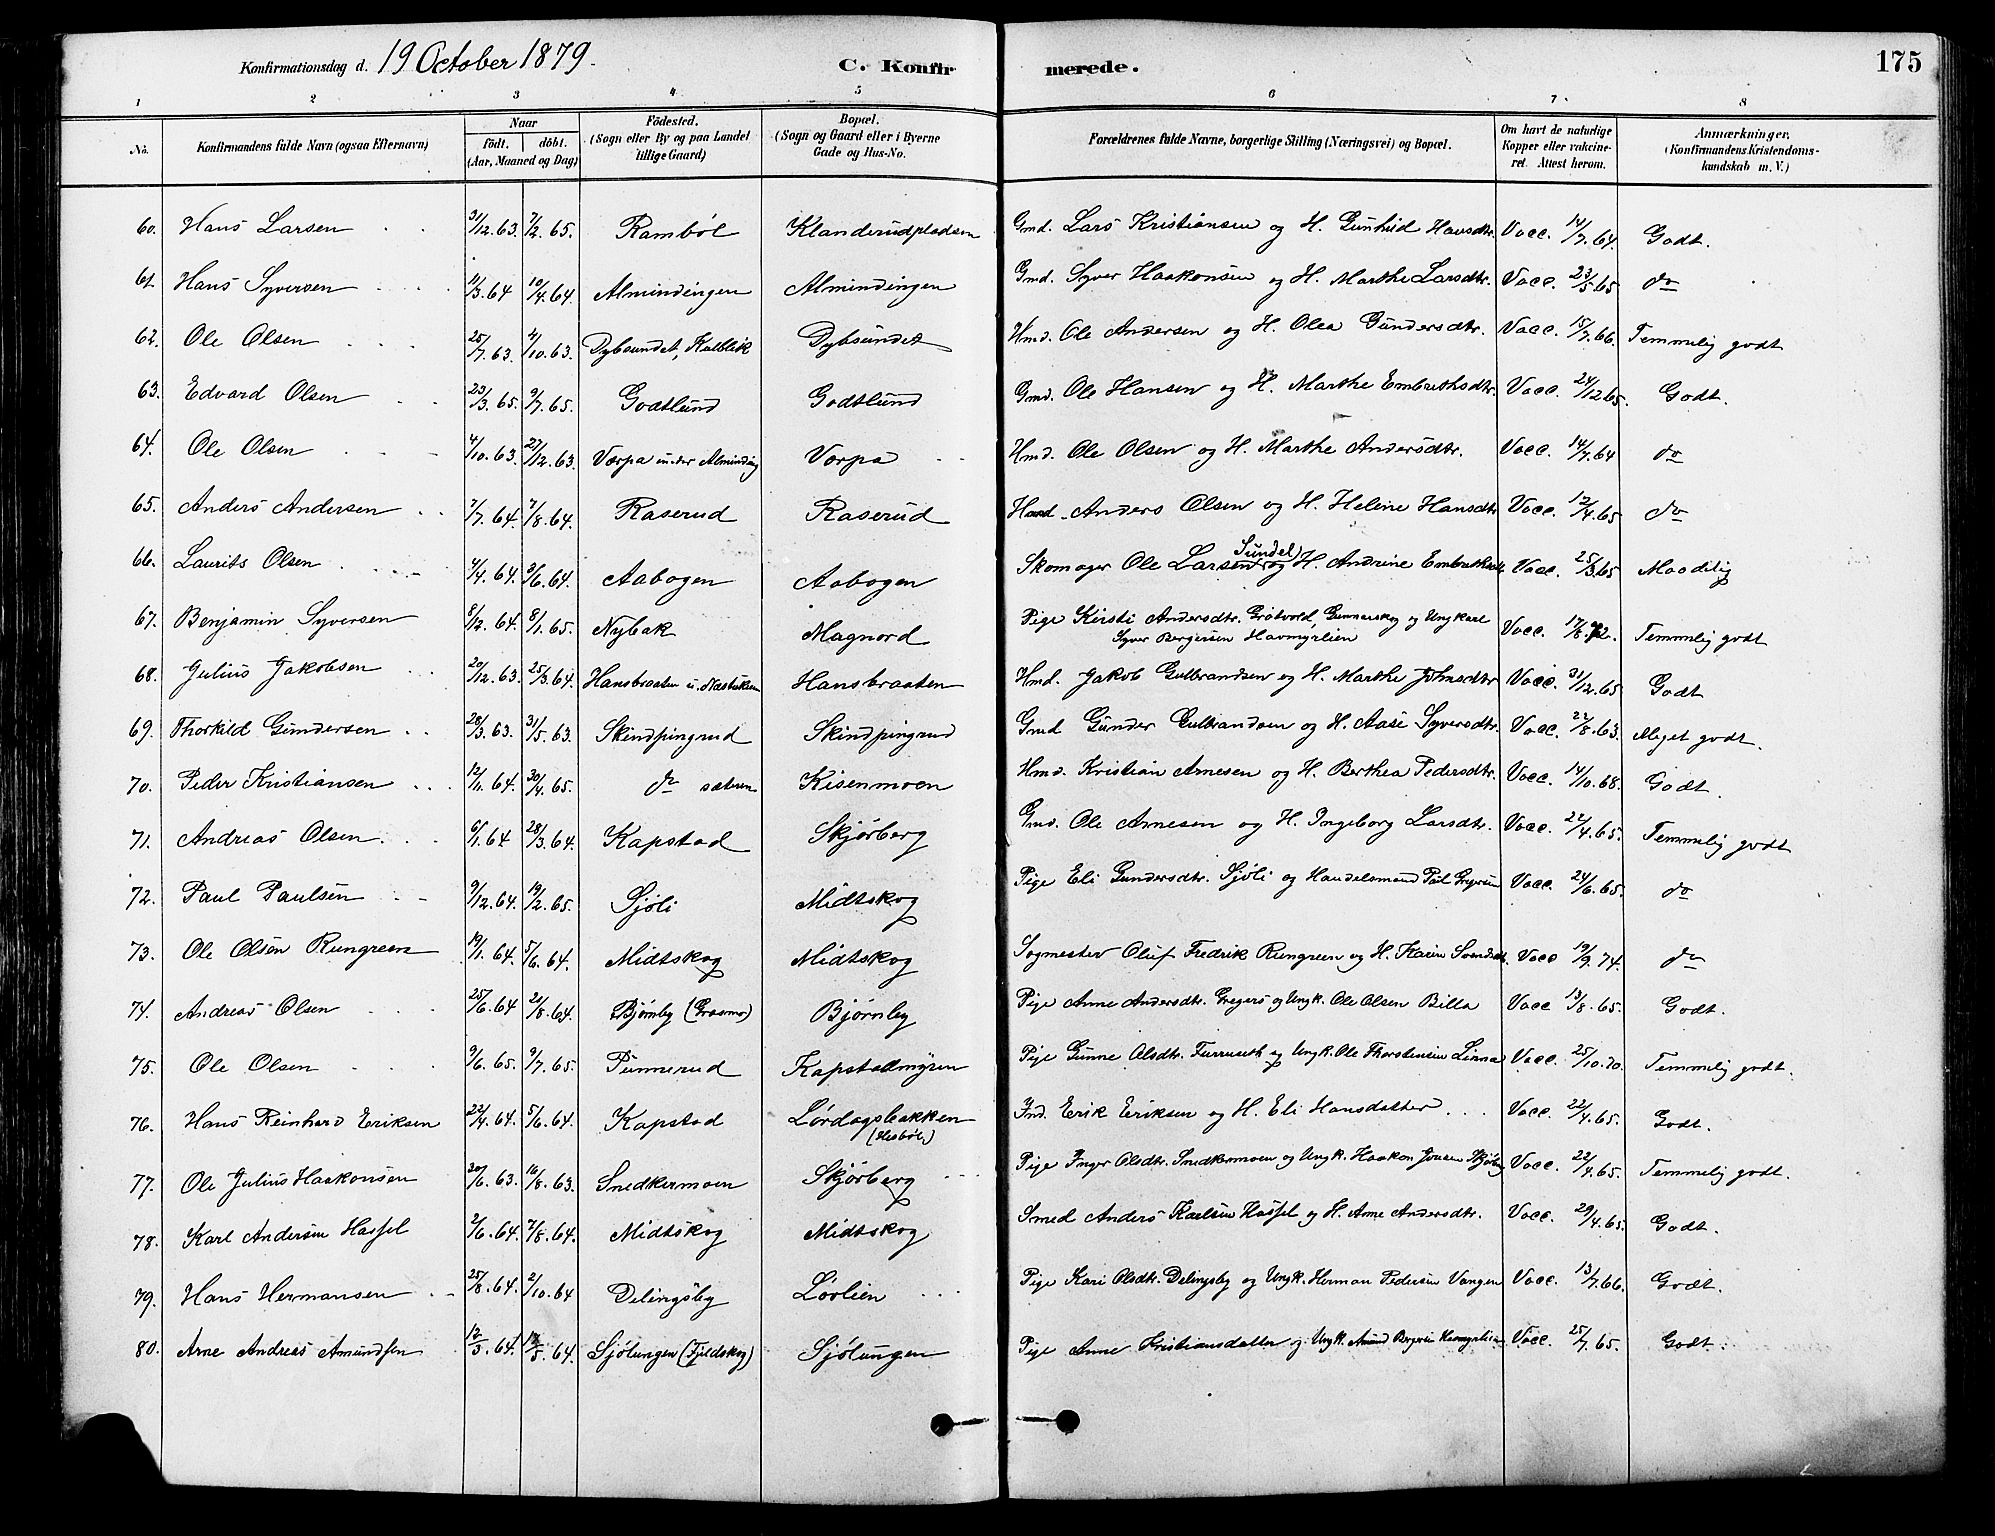 Konfirmationsdag d. 19 October 1879. C. Konfirmerede. 175
1 2 3 4 5 6 7 8
No. Konfirmandens fulde Navn (ogsaa Efternavn) Naar födt. döbt. (Aar, Maaned og Dag) Födested. (Sogn eller By og paa Landet tillige Gaard) Bopæl. (Sogn og Gaard eller i Byerne Gade og Hus-No. Forældrenes fulde Navne, borgerlige Stilling (Næringsvei) og Bopæl. Om havt de naturlige Kopper eller vakcineret. Attest herom. Anmærkninger, (Konfirmandens Kristendomskundskab m. V.)
60. Hans Larsen 31/12.63. 7/2.65. Rambøl Klanderudpladsen Gmd. Lars Kristiansen og H. Gunhild Hansdtr. Vacc. 14/7.64. Godt.
61. Hans Syversen 11/3.64 10/4.64. Almindingen Almindingen Gmd. Syver Haakonsen og H. Marthe Larsdtr. Vacc. 23/5.65 do
62. Ole Olsen 25/7.63. 4/10.63. Dybsundet, Kalblik Dybsundet Hmd. Ole Andersen og H. Olea Gundersdtr. Vacc. 15/7.66. Temmelig godt
63. Edvard Olsen 23/3.65. 9/7.65. Godtlund Godtlund Gmd. Ole Hansen og H. Marthe Embrethsdtr. Vacc. 24/12.65. Godt.
64. Ole Olsen 4/10.63. 27/12.63. Varpa under Alminding Varpa Hmd. Ole Olsen og H. Marthe Andersdtr. Vacc. 14/7.64 do
65. Anders Andersen 7/7.64. 7/8.64. Raserud Raserud Hmd. Anders Olsen og H. Helene Hansdtr Vacc. 12/4.65 do
66. Laurits Olsen 4/4.64. 9/6.64. Aabogen Aabogen Skomager Ole Larsen Sundel og H. Andrine Embrethsdtr Vacc. 25/3.65 Maadelig
67. Benjamin Syversen 8/12.64. 8/1.65. Nybak Magnord Pige Kirsti Andersdtr. Grøtvold, Gunnarskog og Ungkarl
Syver Bergersen Havmyrlien Vacc. 17/8.72. Temmelig godt
68. Julius Jakobsen 20/12.63. 25/3.64. Hansbraaten u. Næstukun Hansbraaten Hmd. Jakob Gulbrandsen og H. Marthe Johnsdtr Vacc. 31/12.65 Godt
69. Thorkild Gundersen 28/3.63. 31/5.63. Skindpingrud Skindpingrud Gmd Gunder Gulbrandsen og H. Aase Syversdtr. Vacc. 22/8.63. Meget godt.
70. Peder Kristiansen 12/11.64. 30/4.65. do sæteren Kisenmoen Hmd. Kristian Arnesen og H. Berthea Pedersdtr. Vacc. 14/10.68. Godt.
71. Andreas Olsen 6/1.64 28/3.64. Kapstad Skjørberg Gmd. Ole Arnesen og H. Ingeborg Larsdtr. Vacc. 22/4.65. Temmelig godt
72. Paul Paulsen 9/12.64. 19/2.65. Sjøli Midtskog Pige Eli Gundersdtr. Sjøli og Handelsmand Paul Vacc. 24/6.65. do
73. Ole Olsen Rungreen 19/1.64. 5/6.64. Midtskog Midtskog Sagmester Oluf Fredrik Rungreen og H. Karen Svendsdtr. Vacc 19/9.74. do
74. Andreas Olsen 25/6.64 21/8.64. Bjørnby (Grasmo) Bjørnby Pige Anne Andersdtr. Gregers og Ungk. Ole Olsen Billa Vacc 13/8.65. Godt.
75. Ole Olsen 9/6.65. 9/7.65. Punnerud Kapstadmyren Pige Gunne Olsdtr. Furruseth og Ungk. Ole Thorstensen Linna Vacc. 25/10.70. Temmelig godt.
76. Hans Reinhard Eriksen 22/4.64. 5/6.64. Kapstad Lørdagsbakken (Hesbøl) Ind. Erik Eriksen og H. Eli Hansdatter Vacc. 22/4.65. Godt.
77. Ole Julius Haakonsen 20/6.63. 16/8.63. Snedkermoen Skjørberg Pige Inger Olsdtr. Snedkermoen og Ungk. Haakon Jonsen Skjøberg Vacc. 22/4.65. Temmelig godt.
78. Karl Andersen Hassel 2/6.64. 7/8.64. Midtskog Midtskog Smed Anders Karlsen Hassel og H. Anne Andersdtr. Vacc. 29/4.65. Godt.
79. Hans Hermansen 25/8.64. 2/10.64 Delingsby Løvlien Pige Kari Olsdtr. Delingsby og Ungk. Herman Pedersen Vangen Vacc. 13/7.66. Godt.
80. Arne Andreas Amundsen 12/3.64. 12/5.64. Sjølungen (Fjeldskog) Sjølungen Pige Anne Kristiansdatter og Ungk. Amund Bergersen Havmyrlien Vacc. 25/7.65. Godt.